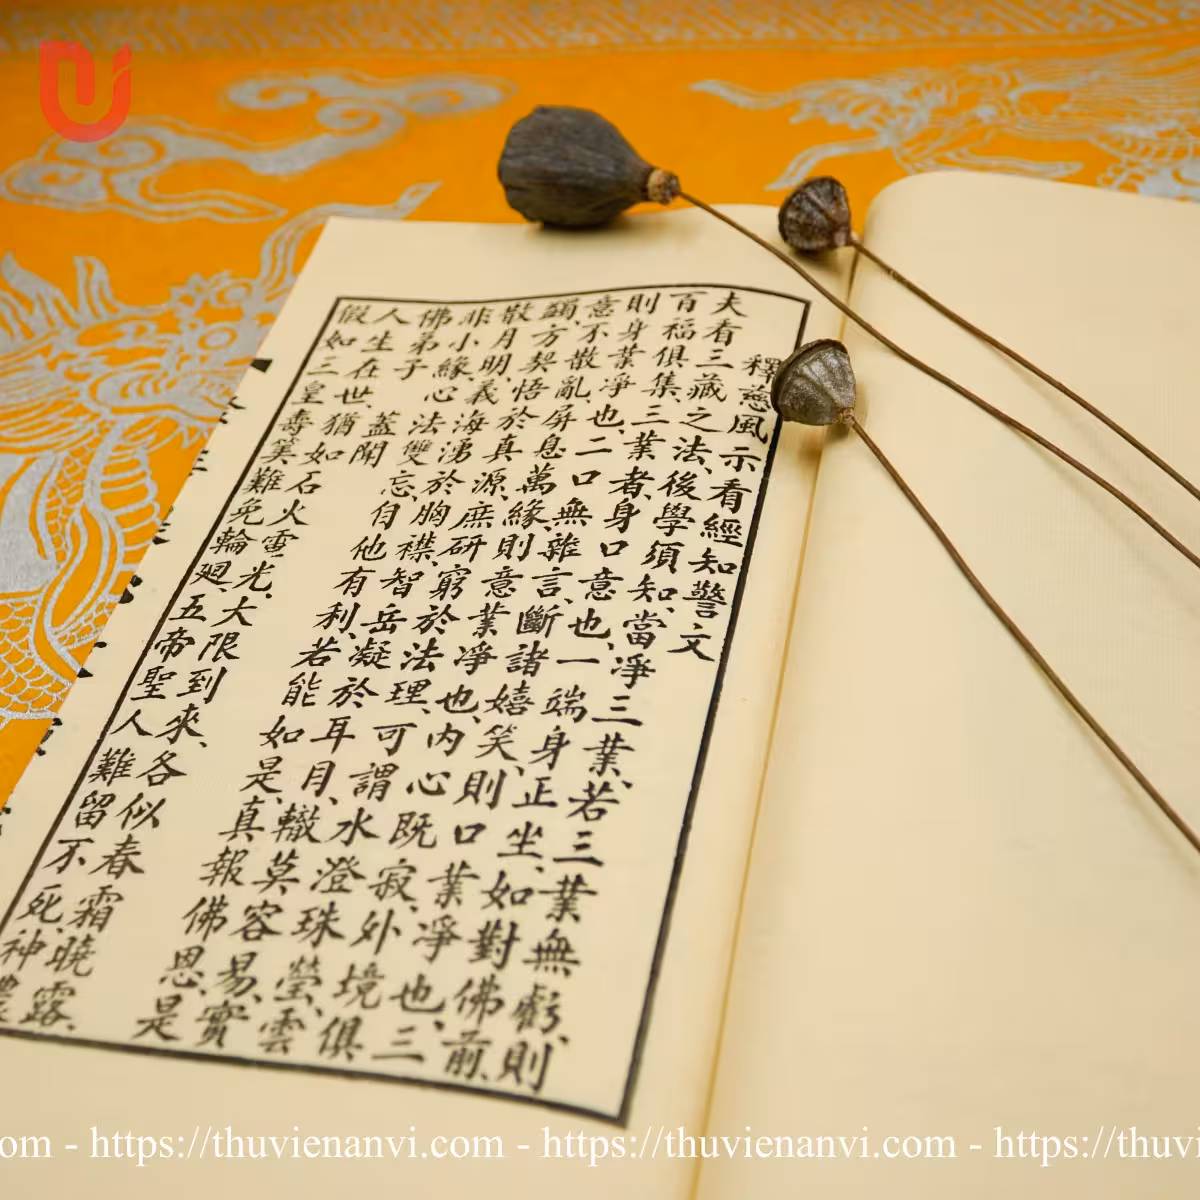 釋慈風示看經知警文
夫看三藏之法、後學須知、當淨三業、若三業無虧、則
百福俱集、三業者、身口意也、一端身正坐、如對佛前、
則身業淨也、二口無雜言、斷諸嬉笑、則口業淨也、三
意不散亂、屏息萬緣、則意業淨也、內心既寂、外境俱
蠲、方契悟於真源、庶研窮於法理、可謂水澄珠瑩、雲
散月明、義海湧於胸襟、智岳凝於耳目、轍莫容易、實
非小緣、心法雙忘、自他有利、若能如是、真報佛恩、是
佛弟子 蓋聞
人生在世、猶如石火電光、大限到來、各似春霜曉露、
假如三皇壽筭難免輪廻、五帝聖人難留不死、神農
om - https://thuvienanvi.com - https://thuvienanvi.com - https://thuvi